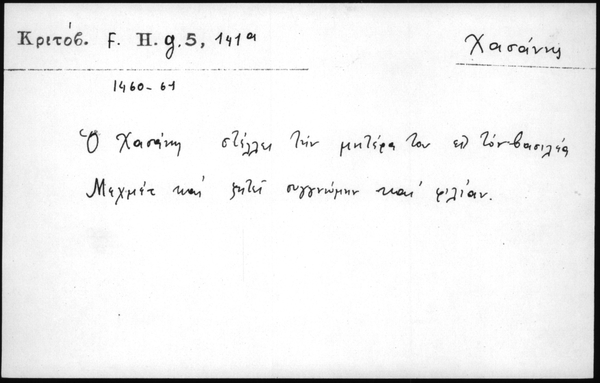 Κριτόβ. F. H. g. 5, 141a
Χασάνης
1460-61
Ὁ Χασάνης στέλλει τὴν μητέρα του εἰς τὸν βασιλέα
Μεχμέτ καὶ ζητεῖ συγγνώμην καὶ φιλίαν.